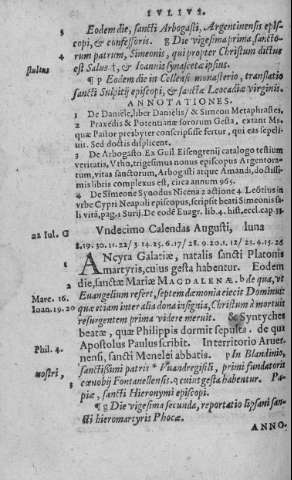 IVLIVS.
Eodem die, sancti Arbogasti, Argentinensis episcopi, & confessoris. g Die vigesima prima, sanctorum patrum, Simeonis, qui propter Christum dictus
stultus
est Salus †, & Ioannis synascetæ ipsius.
¶ p Eodem die in Cellensi monasterio, translatio
sancti Sulpitij episcopi, & sanctæ Leocadiæ virginis.
ANNOTATIONES.
1 De Daniele, liber Danielis, & Simeon Metaphrastes.
2 Praxedis & Potentianæ sororum Gesta, extant. Ms.
quæ Pastor presbyter conscripsisse fertur, qui eas sepeliuit. Sed doctis displicent.
3 De Arbogasto Ex Guil. Eisengrenij catalogo testium
veritatis, Vtho, trigesimus nonus episcopus Argentoratum, vitas sanctorum, Arbogasti atque Amandi, doctissimis libris complexus est, circa annum 965.
4 De Simeone Synodus Nicena 2 actione 4. Leotius in
vrbe Cypri Neapoli episcopus, scripsit beati Simeonis sali vitā, pag. 1 Surij. De eodē Euagr. lib 4. hist. eccl. cap.
22 Iul. G Vndecimo Calendas Augusti, luna
ANcyra Galatiæ, natalis sancti Platonis
martyris, cuius gesta habentur. Eodem
die, sanctæ Mariæ MAGDALENAE. b de qua, vt
Marc. 16. Euangelium refert, septem dæmonia eiecit Dominus
Ioan. 19. 20 quæ etiam inter alia dona insignia, Christum à mortuis
resurgentem prima videre meruit. & Syntyches
beatæ, quæ Philippis dormit sepulta. de qua
Phil. 4. Apostolus Paulus scribit. In territorio Aruernensi, sancti Menelei abbatis. p In Blandinio,
sanctissimi patris * Vuandregisili, primi fundatoris
nostri, cœnobij Fontanellensis. q cuius gesta habentur. Papiæ, sancti Hieronymi episcopi.
¶ g Die vigesima secunda, reportatio lipsani sancti hieromartyris Phocæ.
ANNO-